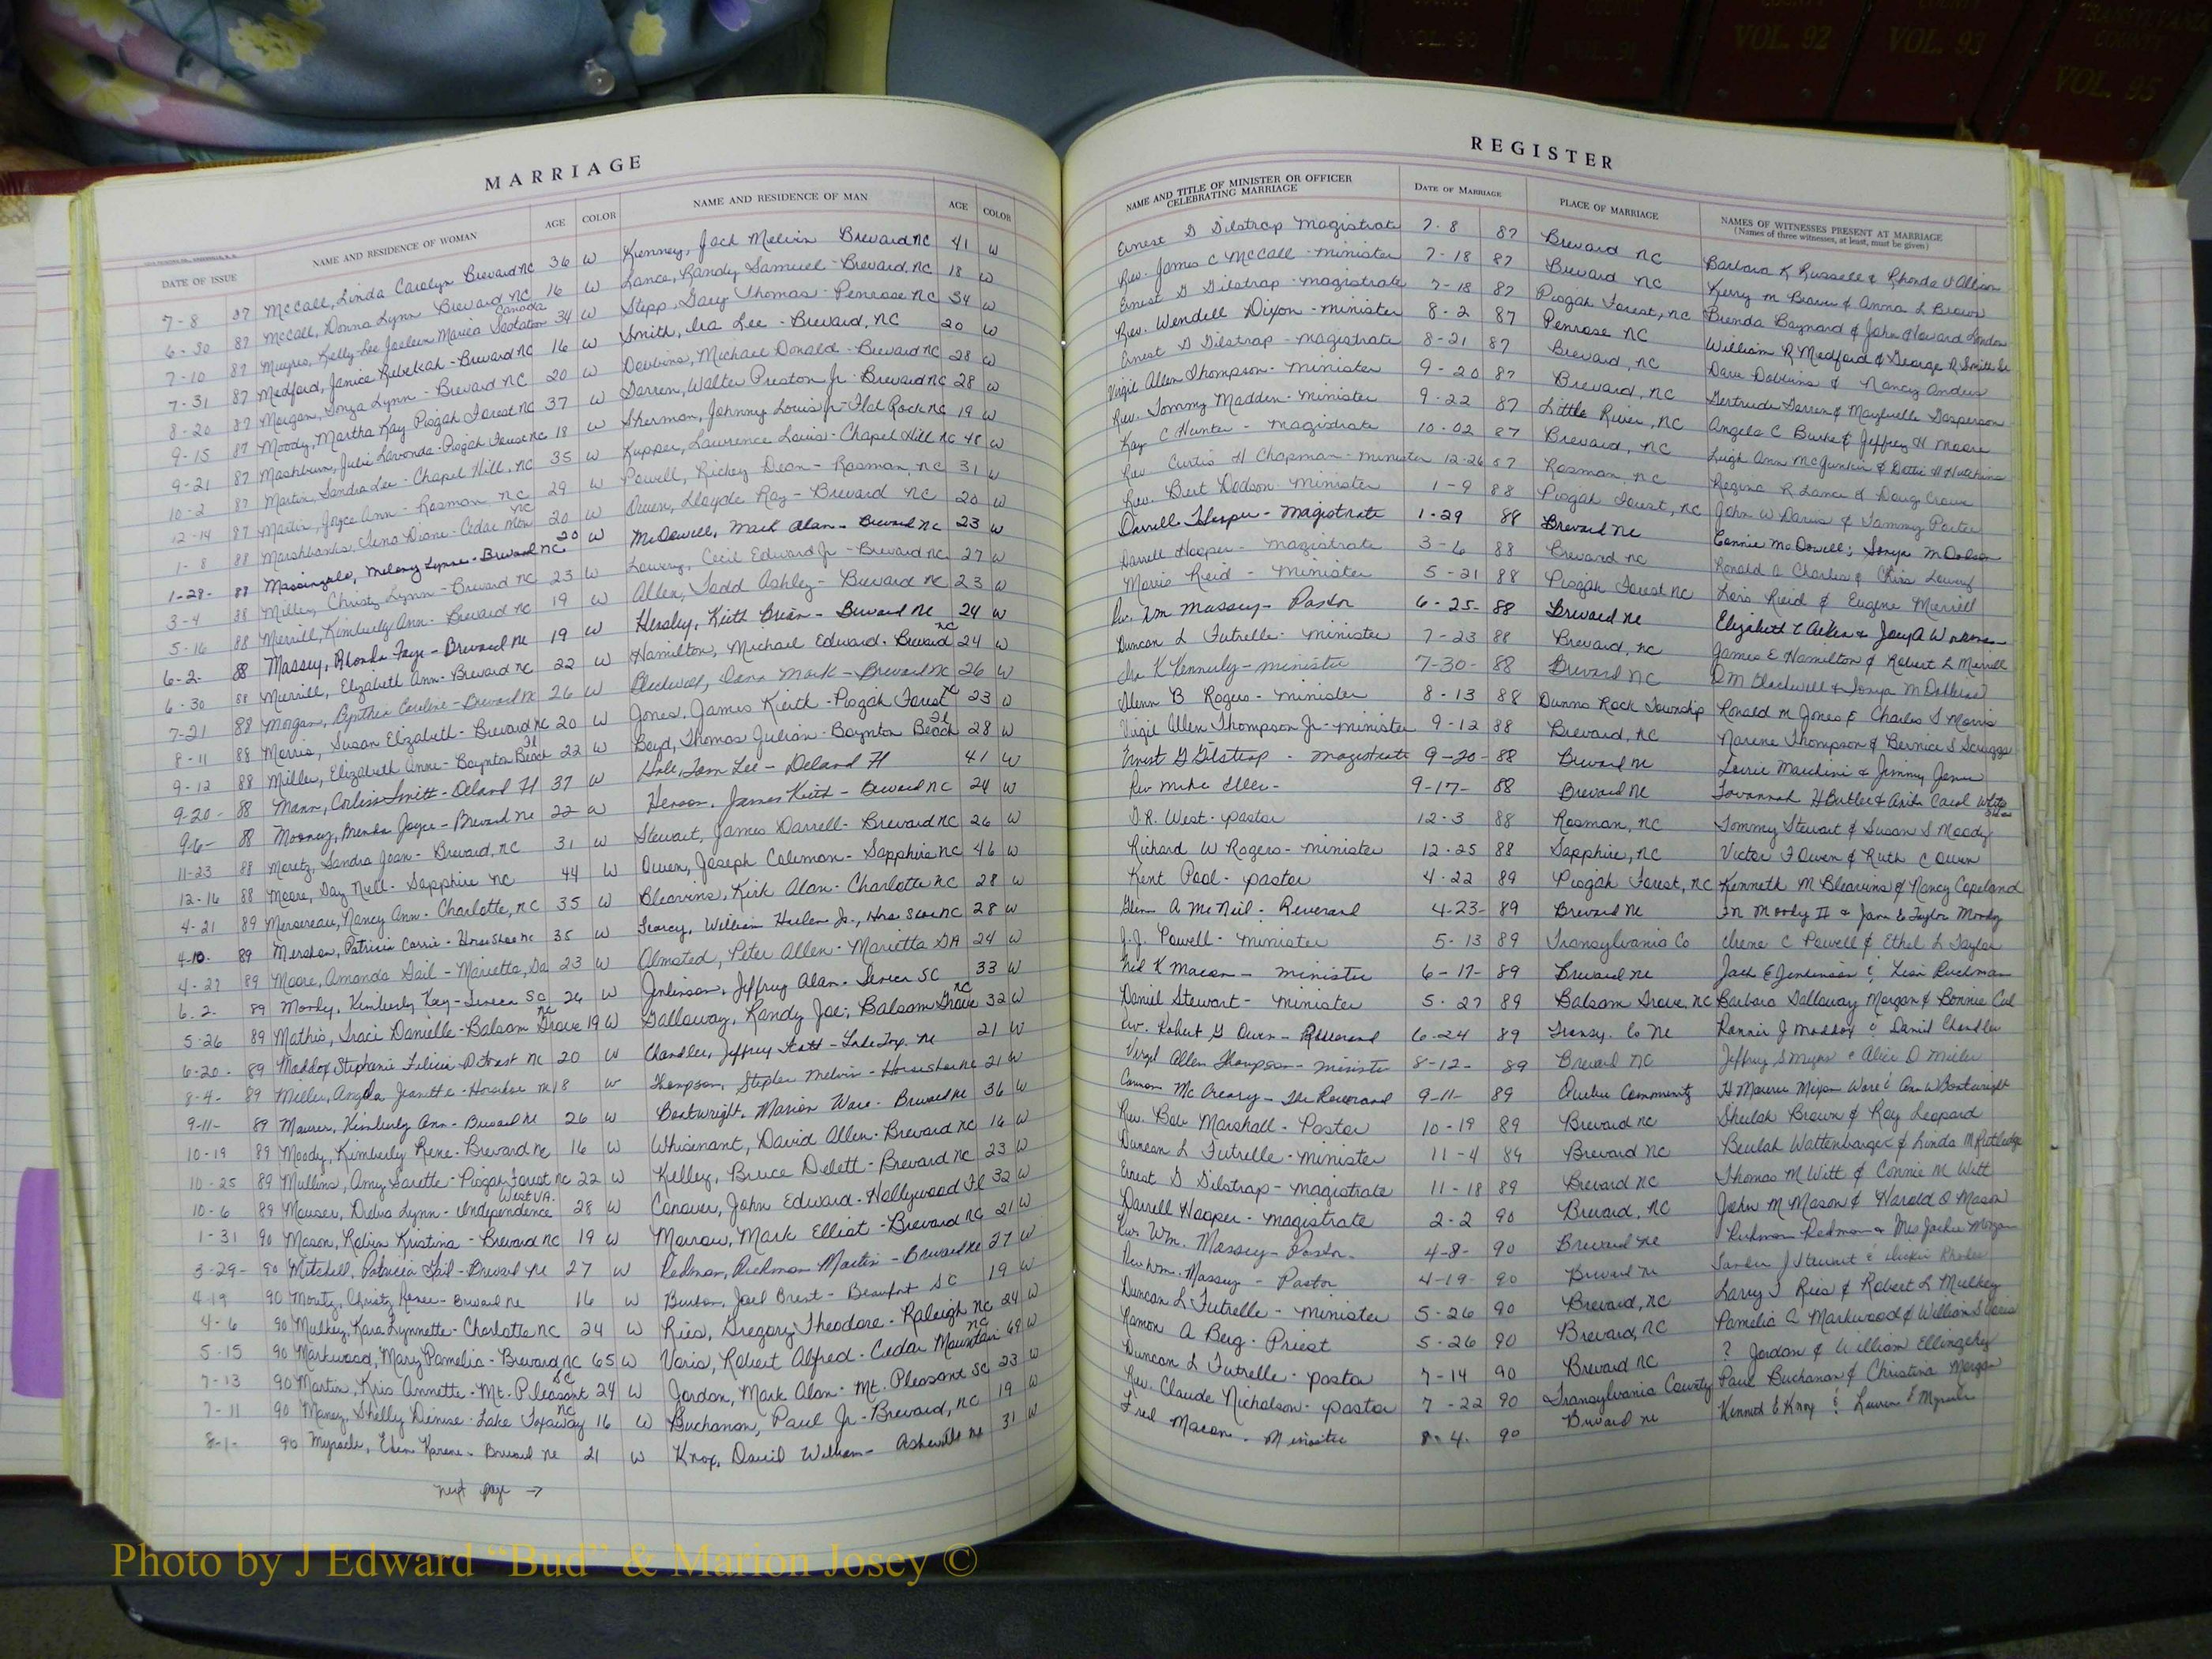 VOL. 90
VOL. 91
VOL. 92
VOL. 93
VOL. 95
MARRIAGE
DATE OF ISSUE NAME AND RESIDENCE OF WOMAN AGE COLOR NAME AND RESIDENCE OF MAN AGE COLOR
7-8 87 McCall, Linda Carolyn Brevard NC 36 W Kenney, Jack Melvin Brevard NC 41 W
6-30 87 McCall, Donna Lynn Brevard NC 16 W Lance, Randy Samuel - Brevard, NC 18 W
7-10 87 Kelly-Lee Joeleen Marica Canada 34 W Stepp, Gary Thomas - Penrose NC 34 W
7-31 87 Medford, Janice Rebekah - Brevard NC 16 W Smith, Ira Lee - Brevard, NC 20 W
8-20 87 Morgan, Sonya Lynn - Brevard NC 20 W Dobbins, Michael Donald - Brevard NC 28 W
9-15 87 Moody, Martha Kay Pisgah Forest NC 37 W Garren, Walter Preston Jr - Brevard NC 28 W
9-21 87 Mashburn, Julie Lavonda - Pisgah Forest NC 18 W Sherman, Johnny Louis Jr - Flat Rock NC 19 W
10-2 87 Martin Sandra Lee - Chapel Hill, NC 35 W Kupper, Lawrence Louis - Chapel Hill NC W
12-14 87 Martin, Joyce Ann - Rosman NC 29 W Powell, Rickey Dean - Rosman, NC 31 W
1-8 88 Marshbanks, Tena Diane - Cedar Mtn NC 20 W Owen, Lloyde Ray - Brevard NC 20 W
1-28- 88 Massingale, Melany Lynne - Brevard NC 20 W McDowell, Mark Alan - Brevard NC 23 W
3-4 88 Miller, Christy Lynn - Brevard NC 23 W Lowery, Cecil Edward Jr - Brevard NC 27 W
5-16 88 Merrill, Kimberly Ann - Brevard NC 19 W Allen, Todd Ashley - Brevard NC 23 W
6-2- 88 Massey, Rhonda Faye - Brevard NC 19 W Hensley, Keith Brian - Brevard NC 24 W
6-30 88 Merrill, Elizabeth Ann - Brevard NC 22 W Hamilton, Michael Edward - Brevard NC 24 W
7-21 88 Morgan, Cynthia Caroline - Brevard NC 26 W Blackwell, Dana Mark - Brevard NC 26 W
8-11 88 Morris, Susan Elizabeth - Brevard NC 20 W Jones, James Kieth - Pisgah Forest NC 23 W
9-12 88 Miller, Elizabeth Anne - Boynton Beach Fl 22 W Boyd, Thomas Julian - Boynton Beach Fl 28 W
9-20- 88 Mann, Corliss Smith - Deland Fl 37 W Hale, Tom Lee - Deland Fl 41 W
9-6- 88 Mooney, Brenda Joyce - Brevard NC 22 W Henson, James Keith - Brevard NC 24 W
11-23 88 Moretz, Sandra Jean - Brevard, NC 31 W Stewart, James Darrell - Brevard NC 26 W
12-16 88 Moore, Day Nell - Sapphire NC 44 W Owen, Joseph Coleman - Sapphire NC 46 W
4-21 89 Mersereau, Nancy Ann - Charlotte, NC 35 W Bleavins, Kirk Alan - Charlotte NC 28 W
4-10- 89 Mershon, Patricia Carrie - Horse Shoe NC 35 W Searcy, William Hulen Jr., Horse Shoe NC 28 W
4-27 89 Moore, Amanda Gail - Marietta, Ga 23 W Olmsted, Peter Allen - Marietta GA 24 W
6-2- 89 Moody, Kimberly Kay - Seneca SC 26 W Jenkinson, Jeffrey Alan - Seneca SC 33 W
5-26 89 Mathis, Traci Danielle - Balsam Grove NC 19 W Galloway, Randy Joe, Balsam Grove NC 32 W
6-20- 89 Maddox Stephanie Felicia - NC 20 W Chandler, Jeffrey Scott - Lake Tox. NC 21 W
8-4- 89 Miller, Angela Jeanette - Horseshoe NC 18 W Thompson, Stephen Melvin - Horseshoe NC 21 W
9-11- 89 Maurer, Kimberly Ann - Brevard NC 26 W Boatwright, Marion Ware - Brevard NC 36 W
10-19 89 Moody, Kimberly Rene - Brevard NC 16 W Whisenant, David Allen - Brevard NC 16 W
10-25 89 Mullins, Amy Sarette - Pisgah Forest NC 22 W Kelley, Bruce Delett - Brevard NC 23 W
10-6 89 Mouser, Debra Lynn - Independence West VA. 28 W Conover, John Edward - Hollywood Fl 32 W
1-31 90 Mason, Robin Kristina - Brevard NC 19 W Morrow, Mark Elliot - Brevard NC 21 W
3-29- 90 Mitchell, Patricia Gail - Brevard NC 27 W Redmon, Richmon Martin - Brevard NC 27 W
4-19 90 Christy Renee - Brevard NC 16 W Burton, Joel Brent - Beaufort SC 19 W
4-6 90 Mulkey, Kara Lynnette - Charlotte NC 24 W Ries, Gregory Theodore - Raleigh NC 24 W
5-15 90 Markwood, Mary Pamelia - Brevard NC 65 W Voris, Robert Alfred - Cedar Mountain NC 69 W
7-13 90 Martin, Kris Annette - Mt. Pleasant SC 24 W Jordan, Mark Alan - Mt. Pleasant SC 23 W
7-11 90 Maney, Shelly Denise - Lake Toxaway NC 16 W Buchanan, Paul Jr - Brevard, NC 19 W
8-1- 90 Myracle, Karene - Brevard NC 21 W Knox, David William - Asheville NC 31 W
next page →
REGISTER
NAME AND TITLE OF MINISTER OR OFFICER CELEBRATING MARRIAGE DATE OF MARRIAGE PLACE OF MARRIAGE NAMES OF WITNESSES PRESENT AT MARRIAGE
(Names of three witnesses, at least, must be given)
Ernest G Gilstrap Magistrate 7-8 87 Brevard NC Barbara K Russell & Rhonda V Allison
Rev. James C McCall - minister 7-18 87 Brevard NC Kerry M Brown & Anna L Brown
Ernest G Gilstrap - magistrate 7-18 87 Pisgah Forest, NC Brenda Baynard & John Howard London
Rev. Wendell Dixon - minister 8-2 87 Penrose NC William R Medford & George R Smith Sr
Ernest G Gilstrap - magistrate 8-21 87 Brevard, NC Dave Dobbins & Nancy Anders
Virgil Allen Thompson - minister 9-20 87 Brevard, NC Gertrude Garren & Maybelle Gasperson
Rev. Tommy Madden - minister 9-22 87 Little River, NC Angela C Burke & Jeffrey H Moore
Kay C Hunter - magistrate 10-02 87 Brevard, NC Leigh Ann McJunkin & Dottie H Hutchins
Rev. Curtis H Chapman - minister 12-26 87 Rosman, NC Regina R Lance & Doug Crowe
Rev. Bert Dodson - minister 1-9 88 Pisgah Forest, NC John W Davis & Tammy Porter
Darrell Hooper - magistrate 1-29 88 Brevard NC Connie McDowell; Sonya M Dobson
Darrell Hooper - magistrate 3-6 88 Brevard NC Ronald C Charles & Chris Lowery
Morris Reid - minister 5-21 88 Pisgah Forest NC Lois Reid & Eugene Merrill
Rev. Wm Massey - Pastor 6-25- 88 Brevard NC Elizabeth C Aiken & Joey A Workman
Duncan L Futrelle - minister 7-23 88 Brevard, NC James E Hamilton & Robert L Merrill
Ira K Kennerly - minister 7-30- 88 Brevard NC D M Blackwell & Sonya M
Glenn B Rogers - minister 8-13 88 Dunns Rock Township Ronald M Jones & Charles S Morris
Virgil Allen Thompson Jr - minister 9-12 88 Brevard, NC Narene Thompson & Bernice S Scruggs
Ernest G Gilstrap - magistrate 9-20- 88 Brevard NC Lorrie Marchini & Jimmy Jones
Rev Mike Eller - 9-17- 88 Brevard NC Savannah H Butler & Anita Carol White
D.R. West - pastor 12-3 88 Rosman, NC Tommy Stewart & Susan S Moody
Richard W Rogers - minister 12-25 88 Sapphire, NC Victor F Owen & Ruth C Owen
Kent Pool - pastor 4-22 89 Pisgah Forest, NC Kenneth M Bleavins & Nancy Copeland
Glenn A McNeil - Reverend 4-23- 89 Brevard NC Moody II & Jann E Taylor Moody
J.J. Powell - minister 5-13 89 Transylvania Co Irene C Powell & Ethel L Taylor
Fred K Macon - minister 6-17- 89 Brevard NC Jack E Jenkinson & Lisa Ruchman
Daniel Stewart - minister 5-27 89 Balsam Grove, NC Barbara Galloway Morgan & Bonnie
Rev. Robert G Owen - Reverend 6-24 89 Transy. Co NC Ronnie J Maddox & David Chandler
Virgil Allen Thompson - minister 8-12- 89 Brevard NC Jeffrey S Myers & Alice D Miller
Connon McCreary - The Reverend 9-11- 89 Quebec Community H Maurice Mixson Ware & Ann W Boatwright
Rev. Bob Marshall - Pastor 10-19 89 Brevard NC Sheilah Brown & Ray Leopard
Duncan L Futrelle - minister 11-4 89 Brevard NC Beulah Wattenbarger & Linda M Rutledge
Ernest G Gilstrap - magistrate 11-18 89 Brevard NC Thomas M Witt & Connie M Witt
Darrell Hooper - magistrate 2-2 90 Brevard, NC John M Mason & Harold O Mason
Rev Wm. Massey - Pastor - 4-8- 90 Brevard NC Richmon Redmon & Mrs Jackie Morgan
Rev Wm. Massey - Pastor 4-19- 90 Brevard NC Sandra J Stewart & Vickie Rhodes
Duncan L Futrelle - minister 5-26 90 Brevard, NC Larry T Ries & Robert L Mulkey
Ramon A Berg - Priest 5-26 90 Brevard, NC Pamelia A Markwood & William S Voris
Duncan L Futrelle - pastor 7-14 90 Brevard NC ? Jordan & William Ellingsley
Rev. Claude Nicholson - pastor 7-22 90 Transylvania County Paul Buchanan & Christina Morgan
Fred Macon - Minister 8-4- 90 Brevard NC Kenneth E Knox & Lauren E Myracle
Photo by J Edward “Bud” & Marion Josey ©